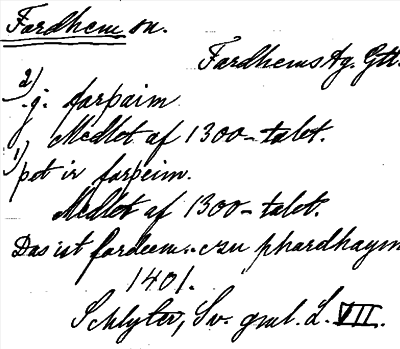 Fardhem sn.
Fardhems tg. Gtl.
2) j: farþaim
Medlet af 1300-talet.
1) þet ir farþeim.
Medlet af 1300-talet.
Das ist fardeem.. czu phardhaym
1401.
Schlyter, Sv. gml. L. VII.